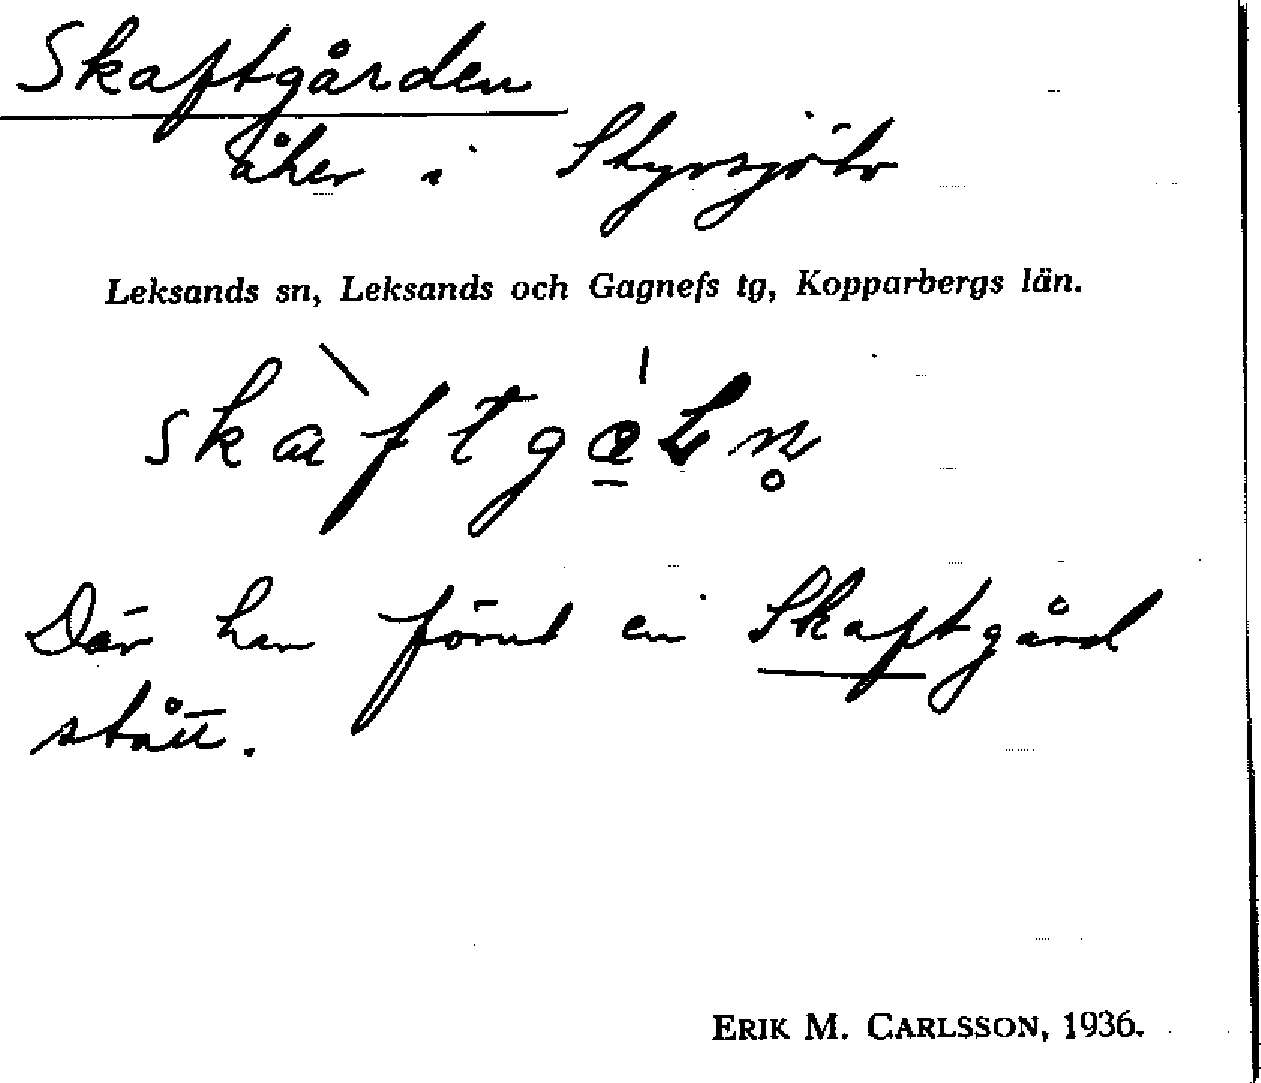 Skaftgården
åker i Styrsjöbo
Leksands sn, Leksands och Gagnefs tg, Kopparbergs län.
Där har förut en Skaftgård
stått.
ERIK M. CARLSSON, 1936.